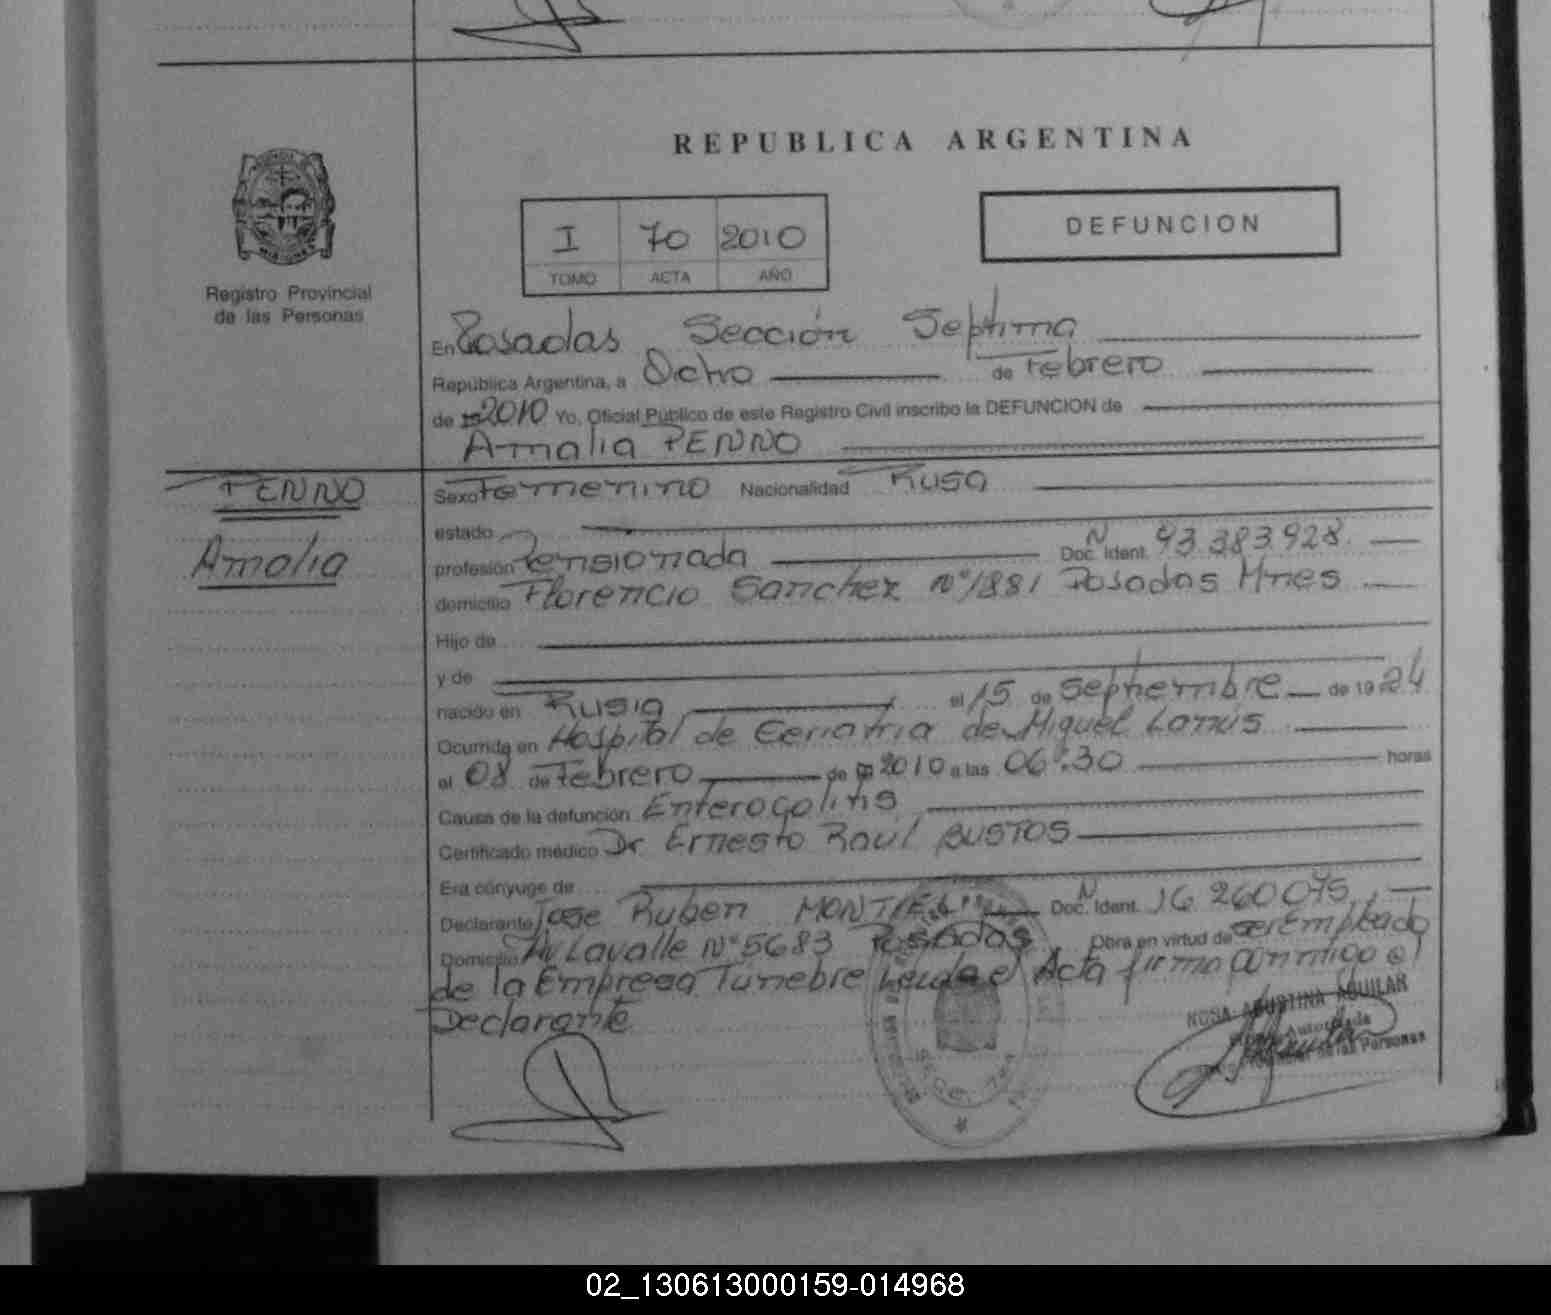 REPUBLICA ARGENTINA
I 70 2010
TOMO ACTA AÑO
DEFUNCION
Registro Provincial
de las Personas
En Posadas Sección Septima
República Argentina, a Ocho de Febrero
de 2010 Yo, Oficial Público de este Registro Civil inscribo la DEFUNCION de
Amalia PENNO
PENNO
Amalia
Sexo Femenino Nacionalidad Rusa
estado
profesión Pensionada Doc. Ident. N 93.383.928
domicilio Florencio Sanchez Nº 1881 Posadas Mnes
Hijo de
y de
nacido en Rusia el 15 de Septiembre de 1924
Ocurrida en Hospital de Geriatria de Miguel Lanús
el 08 de Febrero de 2010 a las 06:30 horas
Causa de la defunción Enterocolitis
Certificado médico Dr Ernesto Raul BUSTOS
Era cónyuge de
Declarante Jose Ruben MONTIEL Doc. Ident. N 16.260.075
Domicilio Av Lavalle Nº 5683 Posadas Obra en virtud de ser Empleado
de la Empresa Funebre Leida el Acta firma conmigo el
Declarante
ROSA AGUSTINA AGUILAR
de las Personas
02_130613000159-014968